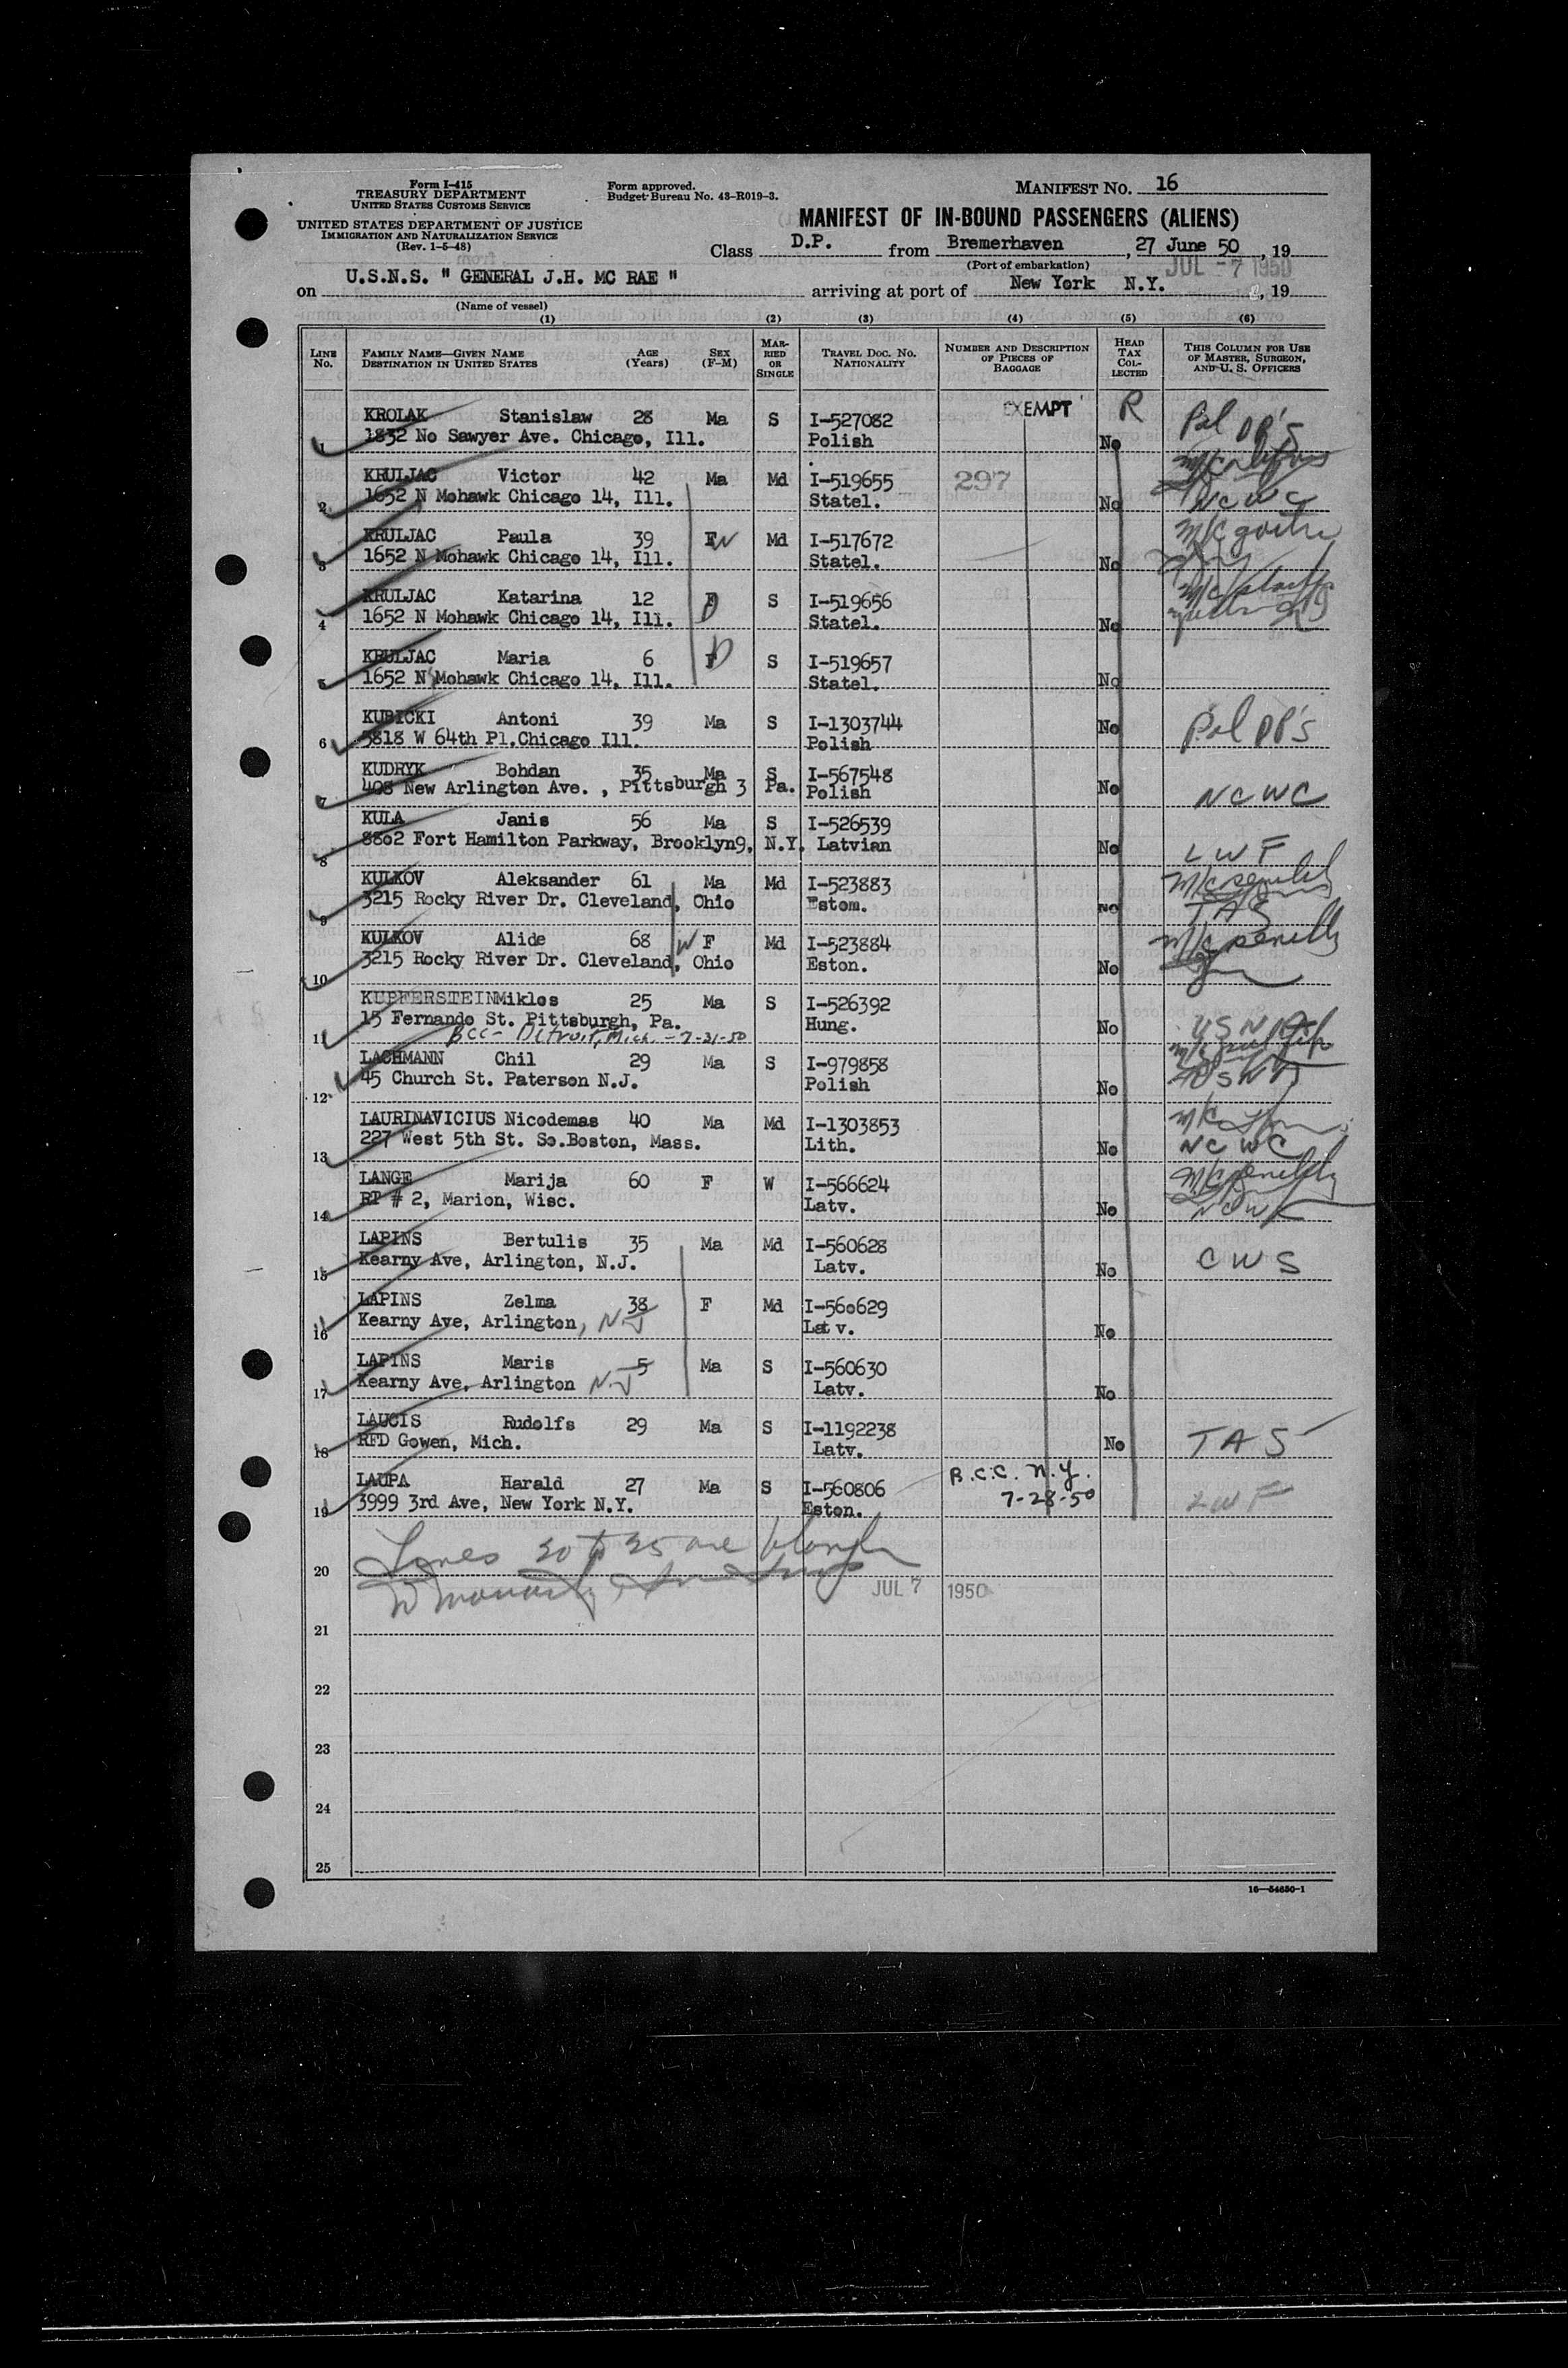 Form I-415
TREASURY DEPARTMENT
UNITED STATES CUSTOMS SERVICE
UNITED STATES DEPARTMENT OF JUSTICE
IMMIGRATION AND NATURALIZATION SERVICE
(Rev. 1-5-48)
Form approved.
Budget Bureau No. 43-R019-3.
MANIFEST NO. 16
MANIFEST OF IN-BOUND PASSENGERS (ALIENS)
Class D.P. from Bremerhaven, 27 June 50, 19
(Port of embarkation)
JUL -7 1950
on U.S.N.S. " GENERAL J.H. MC RAE " arriving at port of New York N.Y. , 19
(Name of vessel)
(1) (2) (3) (4) (5) (6)
LINE No. FAMILY NAME—GIVEN NAME DESTINATION IN UNITED STATES AGE (Years) SEX (F-M) MARRIED OR SINGLE TRAVEL DOC. NO. NATIONALITY NUMBER AND DESCRIPTION OF PIECES OF BAGGAGE HEAD TAX COLLECTED THIS COLUMN FOR USE OF MASTER, SURGEON, AND U. S. OFFICERS
KROLAK Stanislaw 28 Ma S I-527082 EXEMPT R Pol DP's
1 1832 No Sawyer Ave. Chicago, Ill. Polish No
KRULJAC Victor 42 Ma Md I-519655 297
2 1652 N Mohawk Chicago 14, Ill. Statel. No NCWC
KRULJAC Paula 39 F W Md I-517672 M/C goitre
3 1652 N Mohawk Chicago 14, Ill. Statel. No
KRULJAC Katarina 12 F D S I-519656 M/C
4 1652 N Mohawk Chicago 14, Ill. Statel. No
KRULJAC Maria 6 F D S I-519657
5 1652 N Mohawk Chicago 14, Ill. Statel. No
KUBICKI Antoni 39 Ma S I-1303744 No Pol DP's
6 5818 W 64th Pl.Chicago Ill. Polish
KUDRYK Bohdan 35 Ma S I-567548
7 408 New Arlington Ave. , Pittsburgh 3 Pa. Polish No NCWC
KULA Janis 56 Ma S I-526539
8 8802 Fort Hamilton Parkway, Brooklyn9, N.Y. Latvian No LWF
KULKOV Aleksander 61 Ma Md I-523883 M/C senility
9 3215 Rocky River Dr. Cleveland, Ohio Estom. No TAS
KULKOV Alide 68 W F Md I-523884 M/C senility
10 3215 Rocky River Dr. Cleveland, Ohio Eston. No
KUPFERSTEIN Miklos 25 Ma S I-526392
15 Fernando St. Pittsburgh, Pa. Hung. No USNA
11 BCC - Detroit, Mich. - 7-31-50
LACHMANN Chil 29 Ma S I-979858
12 45 Church St. Paterson N.J. Polish No USNA
LAURINAVICIUS Nicodemas 40 Ma Md I-1303853 M/C
13 227 West 5th St. So.Boston, Mass. Lith. No NCWC
LANGE Marija 60 F W I-566624 M/C senility
14 RT # 2, Marion, Wisc. Latv. No NCWC
LAPINS Bertulis 35 Ma Md I-560628 CWS
15 Kearny Ave, Arlington, N.J. Latv. No
LAPINS Zelma 38 F Md I-560629
16 Kearny Ave, Arlington, N.J Latv. No
LAPINS Maris 5 Ma S I-560630
17 Kearny Ave, Arlington N.J Latv. No
LAUCIS Rudolfs 29 Ma S I-1192238
18 RFD Gowen, Mich. Latv. No TAS
LAUPA Harald 27 Ma S I-560806 B.C.C. N.Y.
19 3999 3rd Ave, New York N.Y. Eston. 7-28-50 LWF
20 Lines 20 to 25 are blank
JUL 7 1950
21
22
23
24
25
16—54650-1